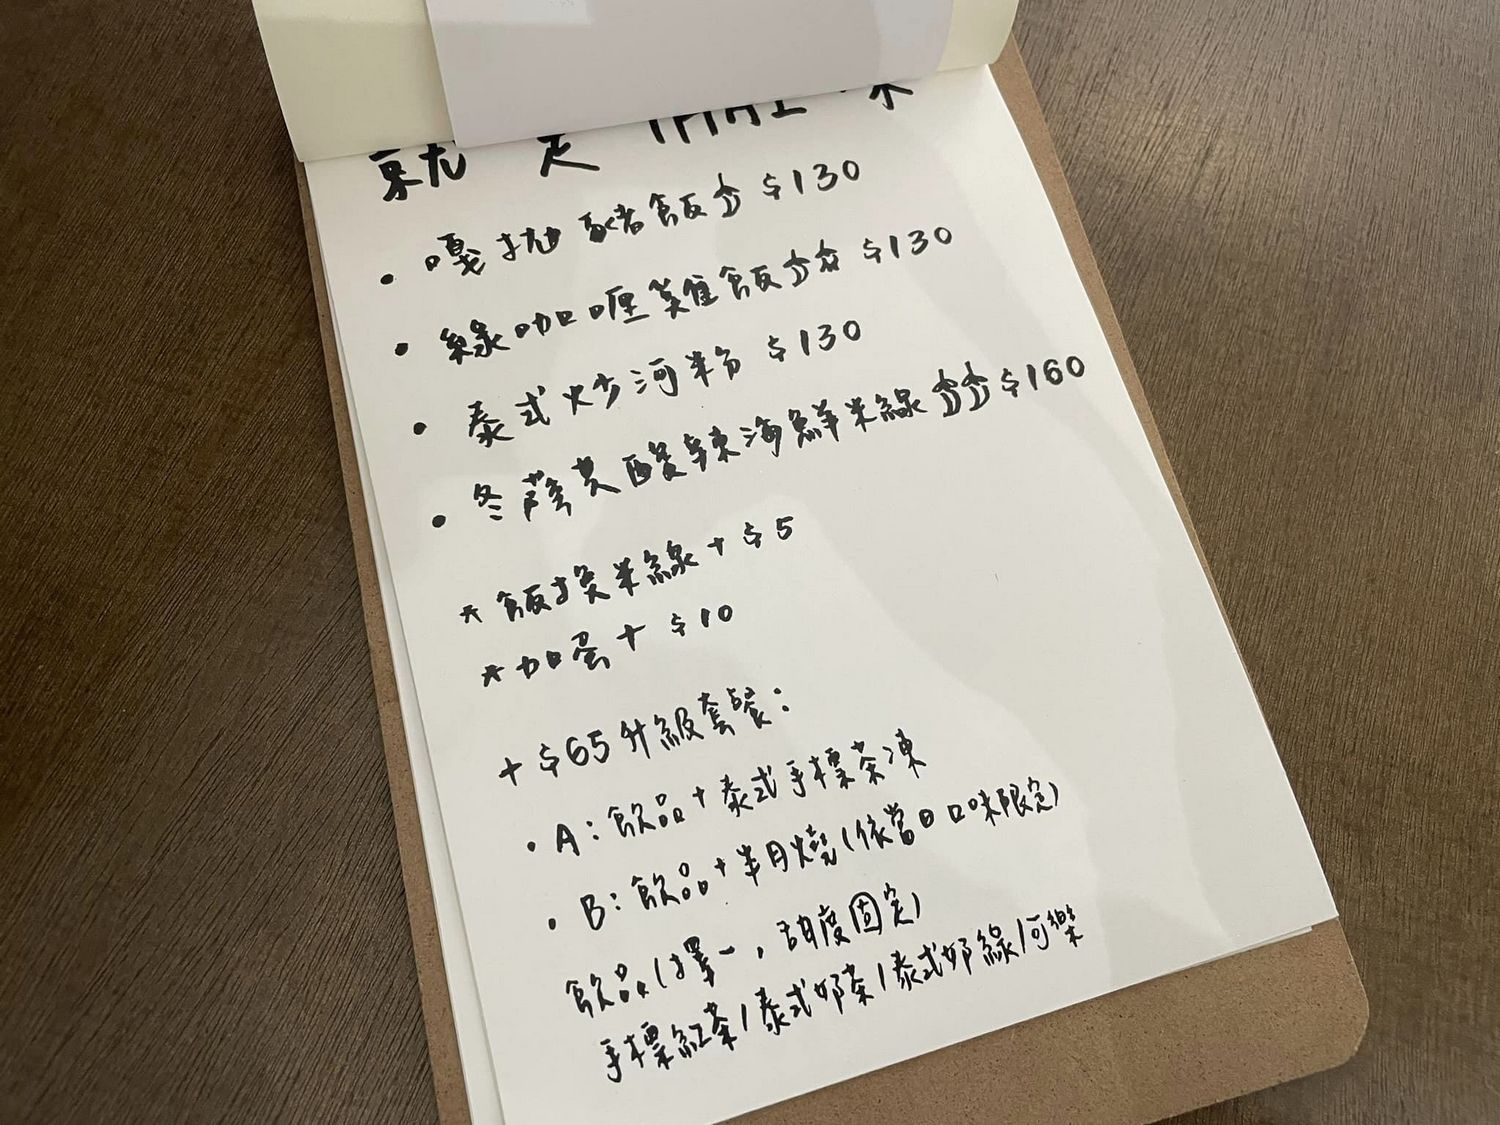 就是
・嘎拋豬飯 $130
・綠咖哩雞飯 $130
・泰式炒河粉 $130
・冬蔭功酸辣海鮮米線 $160
*飯換米線+$5
*加蛋+$10
+$65升級套餐:
・A:飲品+泰式手標茶凍
・B:飲品+半月燒(依當日口味限定)
飲品(擇一,甜度固定)
手標紅茶/泰式奶茶/泰式奶綠/可樂